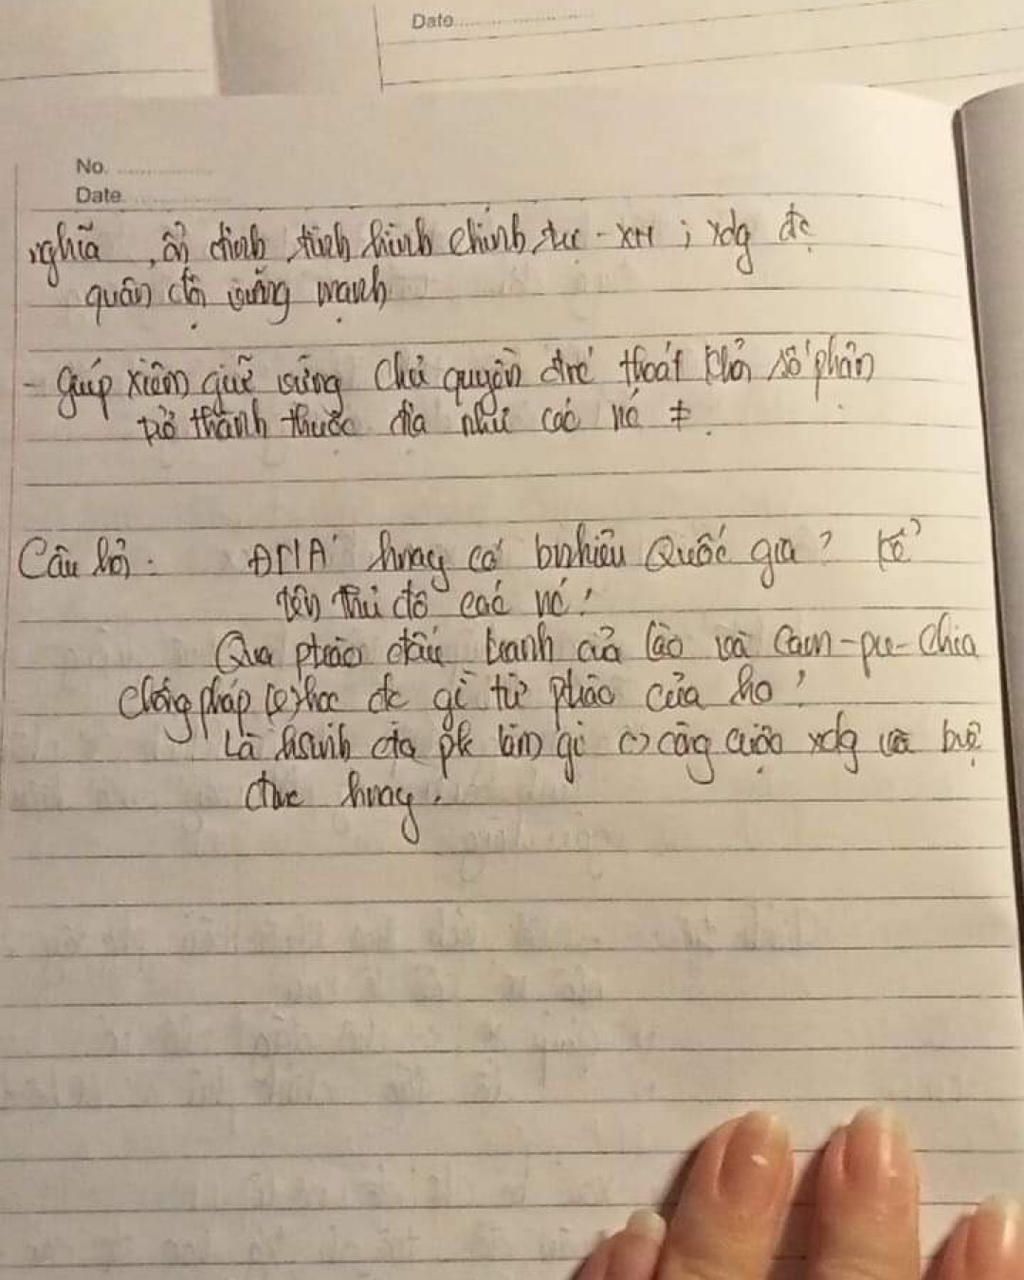 Date
No.
Date
nghĩa, ổn định tình hình chính trị - XH ; xdg đc
quân đội vững mạnh
- Giúp Xiêm giữ vững chủ quyền đnc thoát khỏi số phận
trở thành thuộc địa như các nc ≠.
Câu hỏi: ĐNA hnay có bnhiêu Quốc gia? Kể
tên thủ đô các nc!
Qua ptrào đấu tranh của Lào và Cam-pu-chia
chống pháp học đc gì từ ptrào của họ?
Là hsinh cta pk làm gì công cuộc xdg và bvệ
đnc hnay.